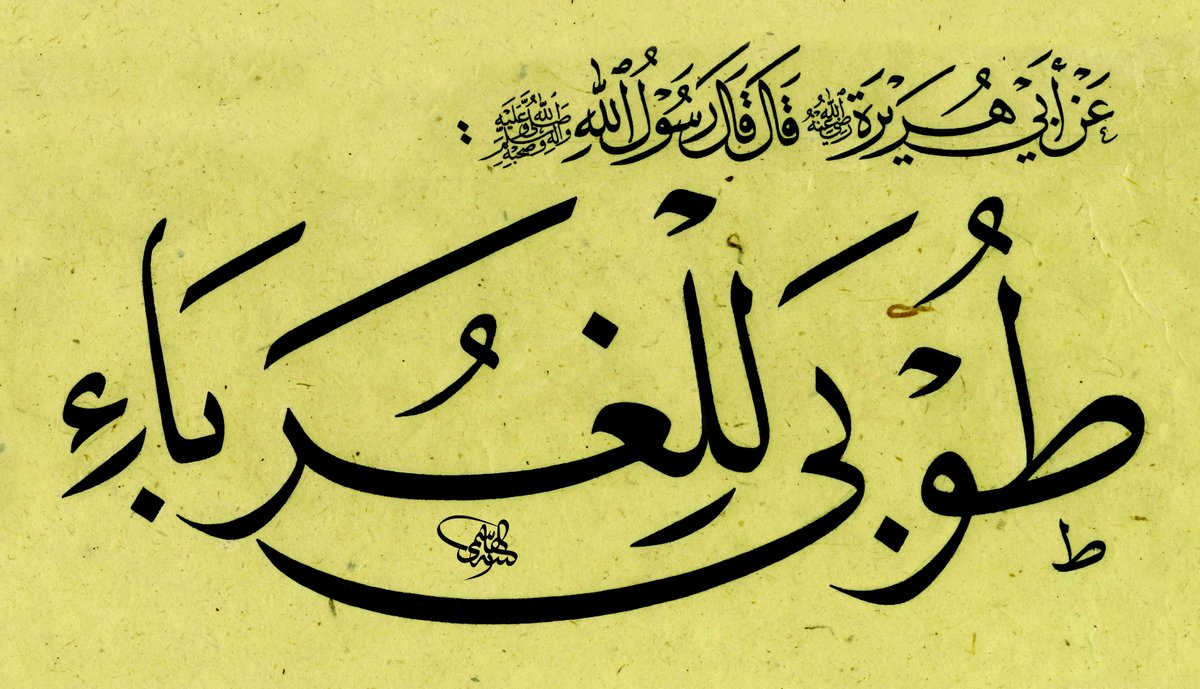 عَنْ أَبِيْ هُرَيْرَةَ رَضِيَ اللهُ عَنْهُ قَالَ قَالَ رَسُوْلُ اللهِ صَلَّى اللهُ عَلَيْهِ وَآلِهِ وَصَحْبِهِ وَسَلَّمَ :
طُوْبَى لِلْغُرَبَاءِ